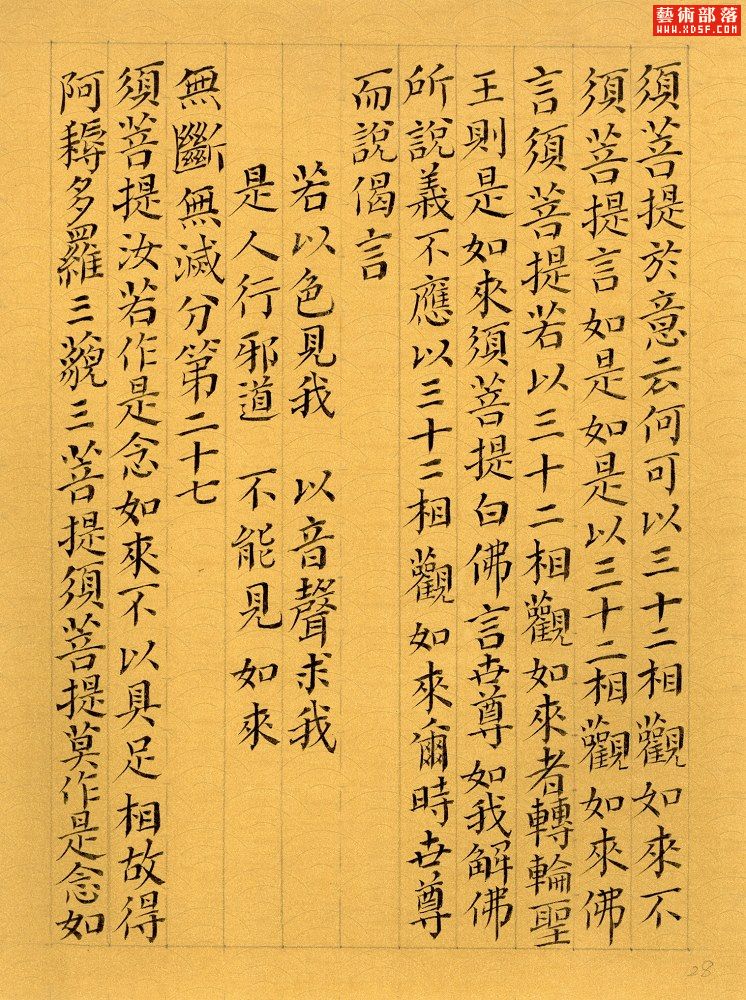 藝術部落
WWW.XDSF.COM
須菩提於意云何可以三十二相觀如來不
須菩提言如是如是以三十二相觀如來佛
言須菩提若以三十二相觀如來者轉輪聖
王則是如來須菩提白佛言世尊如我解佛
所說義不應以三十二相觀如來爾時世尊
而說偈言
若以色見我 以音聲求我
是人行邪道 不能見如來
無斷無滅分第二十七
須菩提汝若作是念如來不以具足相故得
阿耨多羅三藐三菩提須菩提莫作是念如
28